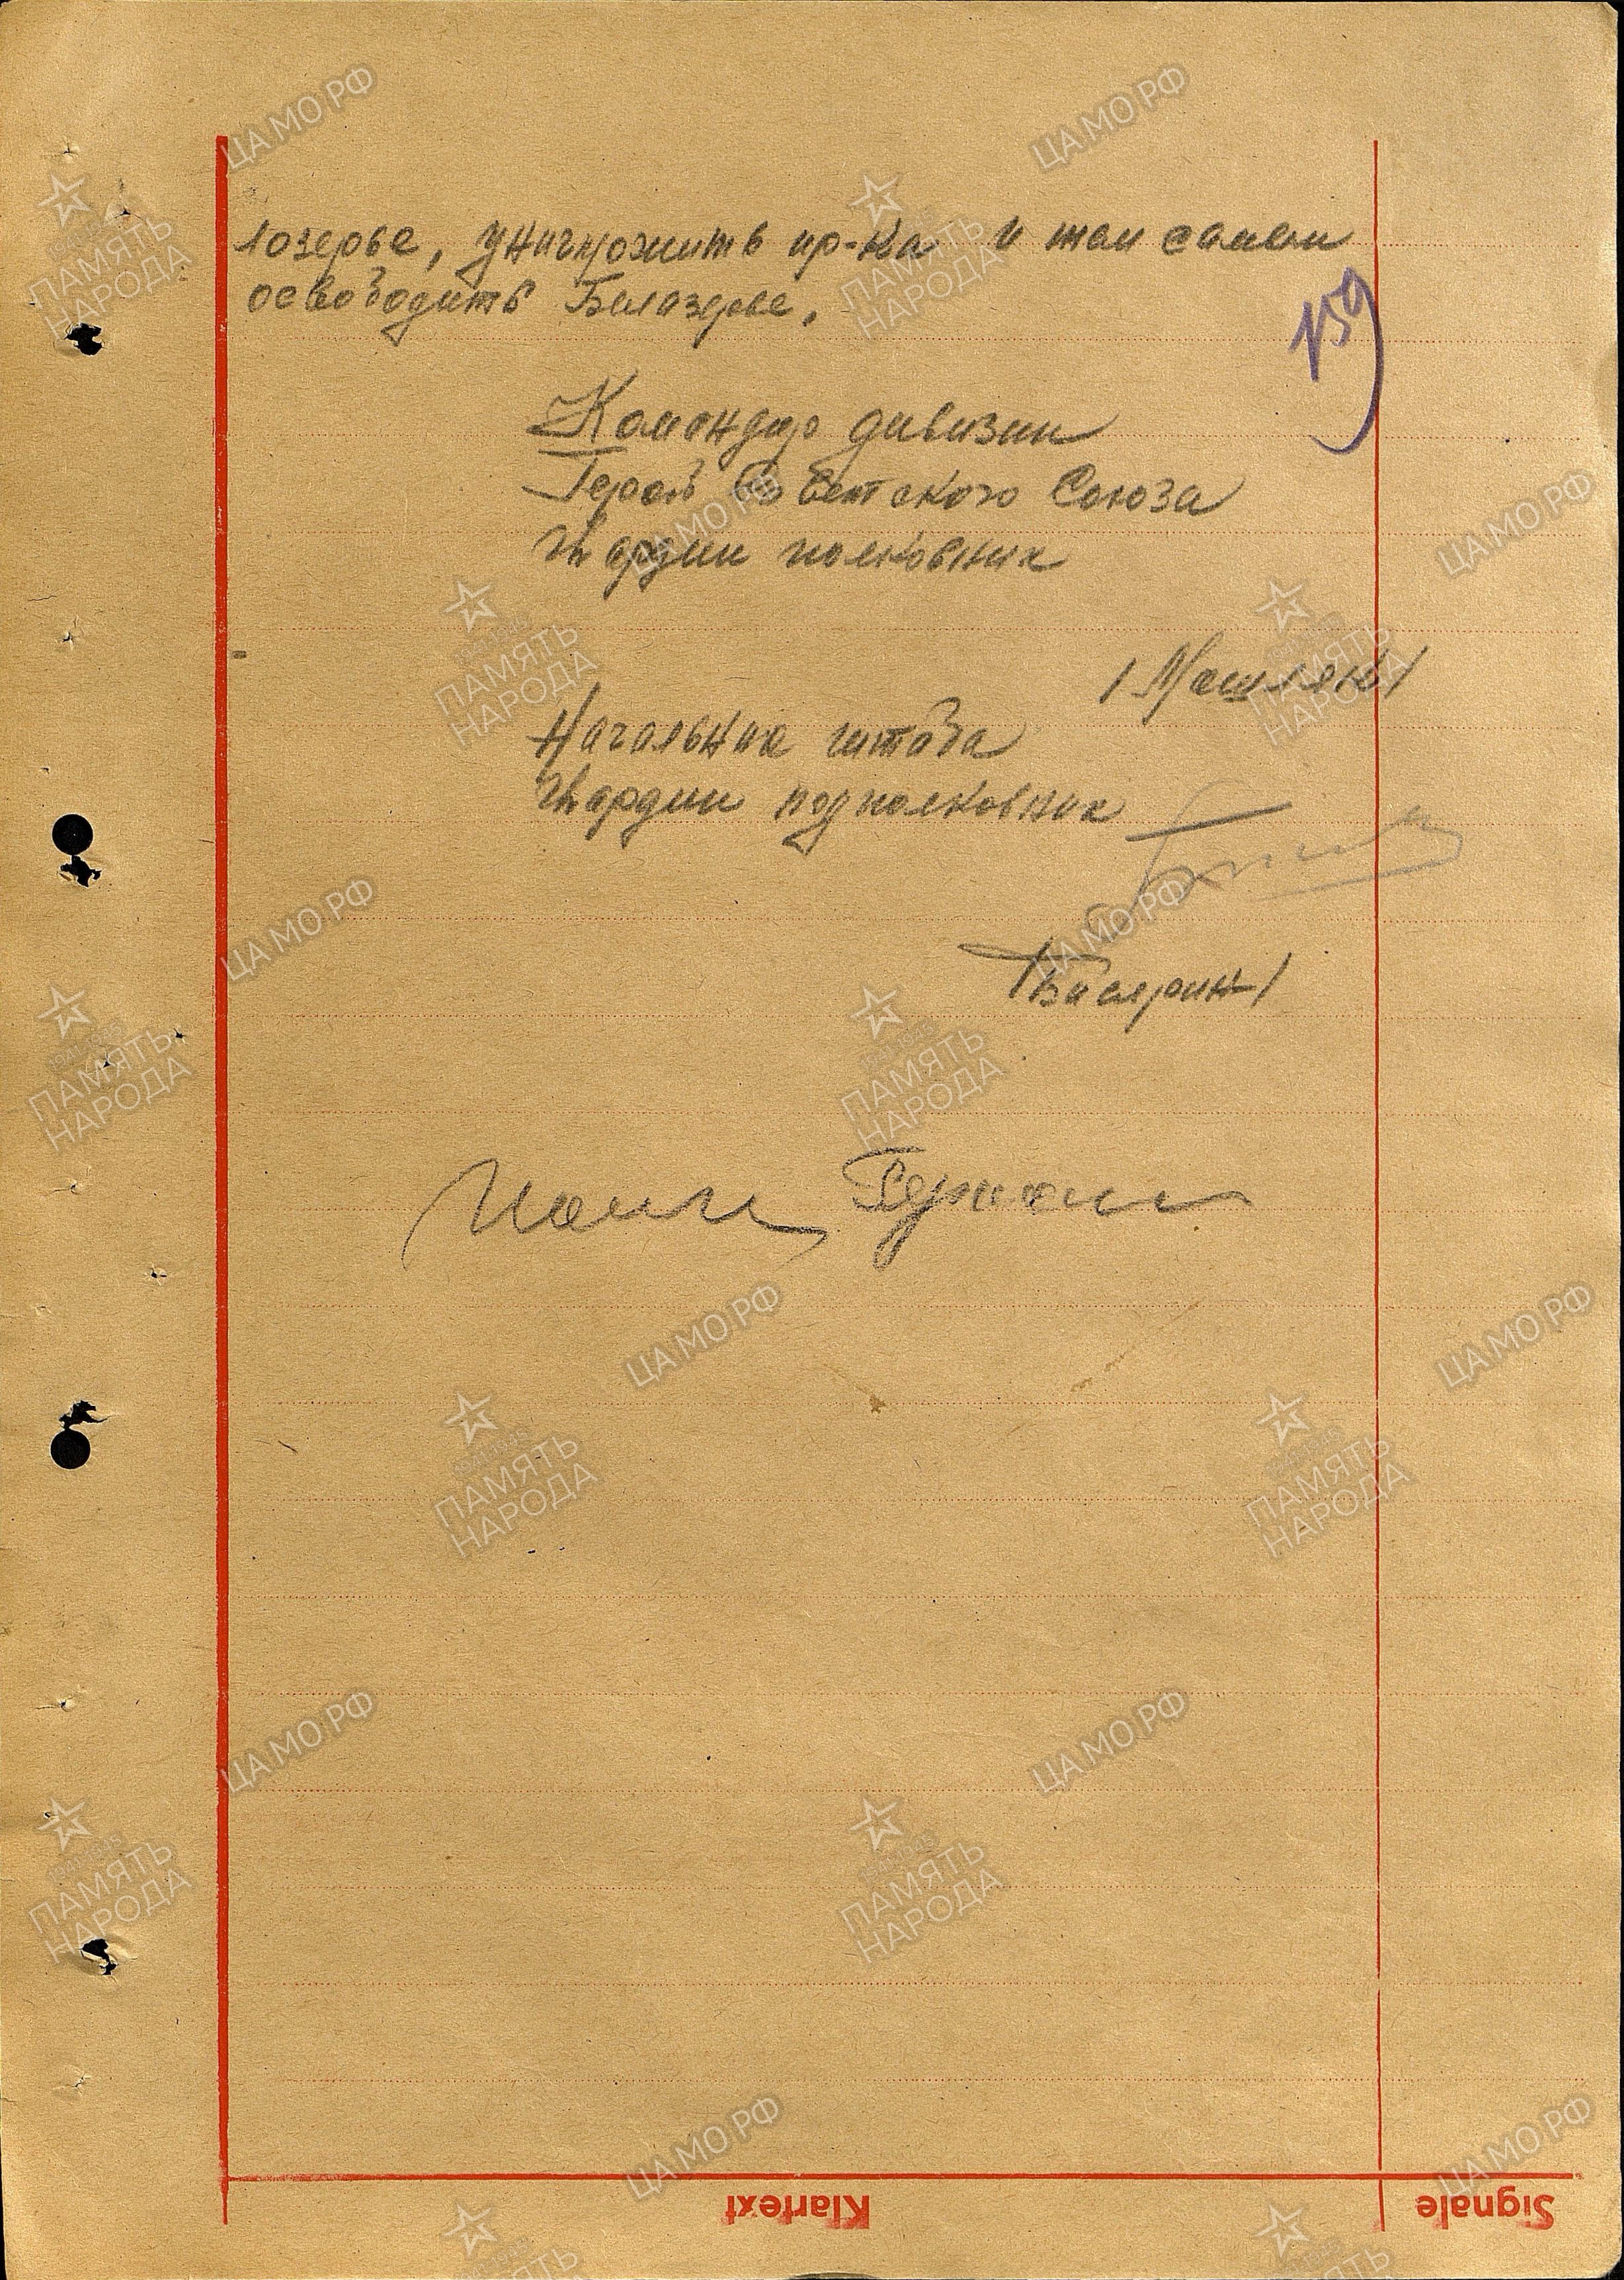 лозерье, уничтожить пр-ка и тем самым
освободить Белазерье.
159
Командир дивизии
Герой Советского Союза
Гвардии полковник
/Машляк/
Начальник штаба
Гвардии подполковник
Klartext
Signale
ЦАМО.РФ
ПАМЯТЬ
НАРОДА
1941-1945